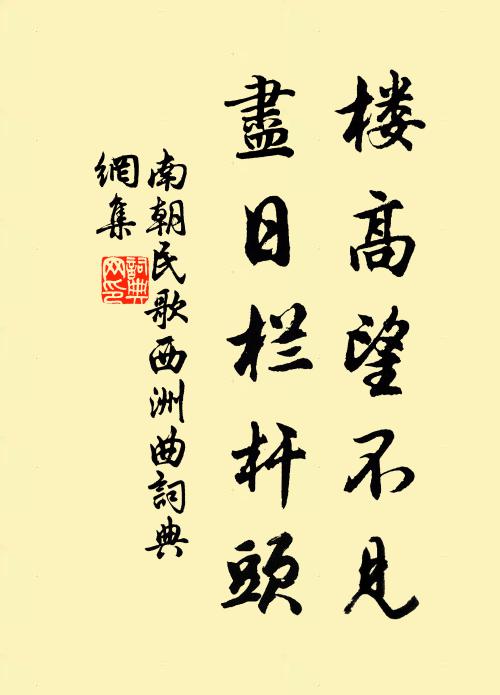 楼高望不見
盡日栏杆頭
南朝民歌西洲曲詞典
網集
詞典网印